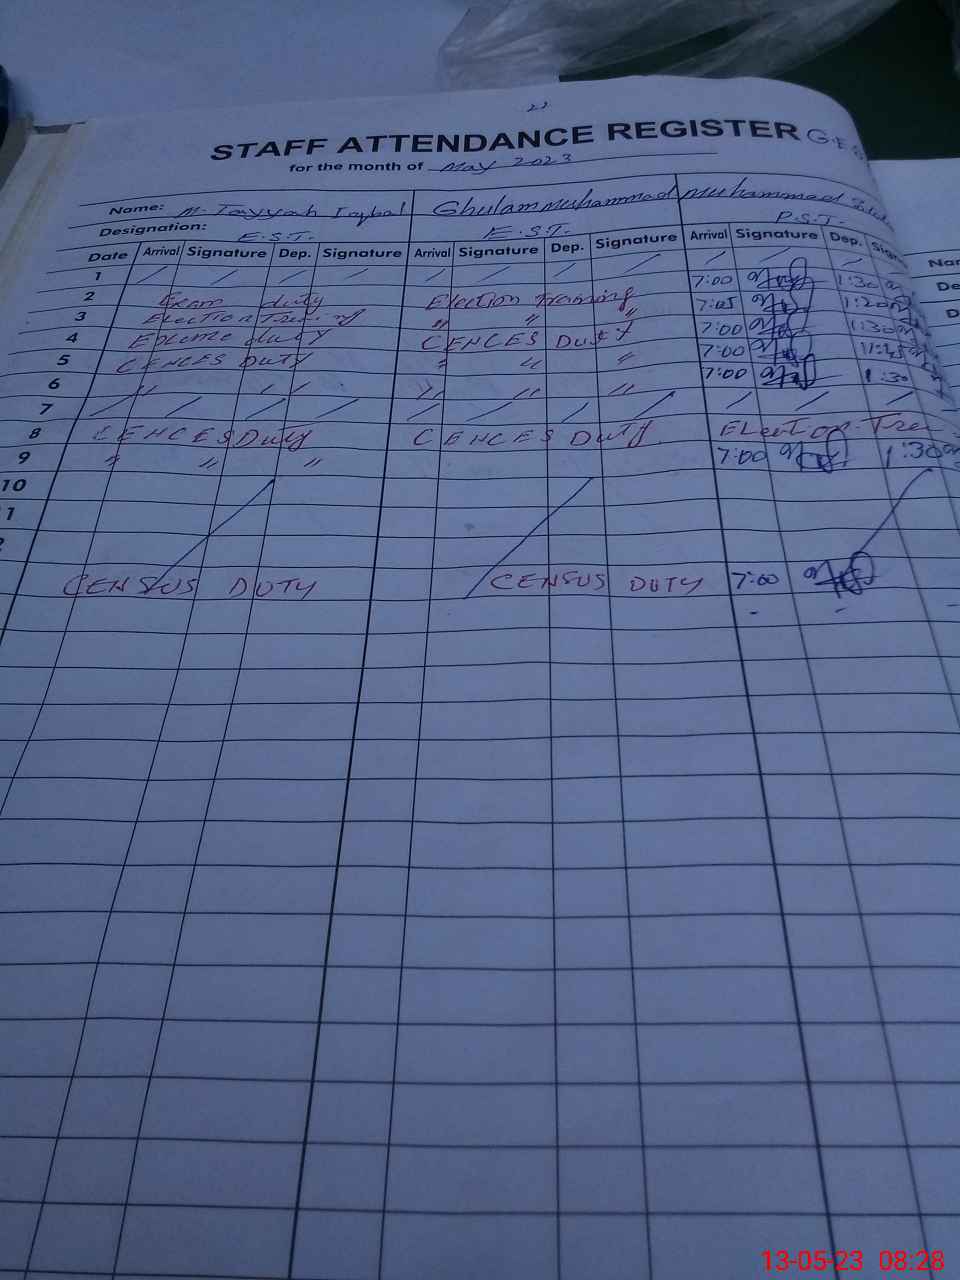 STAFF ATTENDANCE REGISTER G.E.S
for the month of May 2023
Name: M. Tayyab Iqbal Ghulam Muhammad Muhammad
Designation: E.S.T. E.S.T. P.S.T.
Date Arrival Signature Dep. Signature Arrival Signature Dep. Signature Arrival Signature Dep. Sign
1
2 Exam duty Election training 7:00 1:30
3 Election Training " " " 7:05 1:20
4 duty CENCES Duty 7:00 1:30
5 CENCES Duty " " " 7:00 11:
6 " " " " " " 7:00 1:30
7
8 CENCES Duty CENCES Duty Election Trai
9 " " " 7:00 1:30
10
1
2
CENSUS DUTY CENSUS DUTY 7:00
- - -
Nam
De
D
13-05-23 08:28